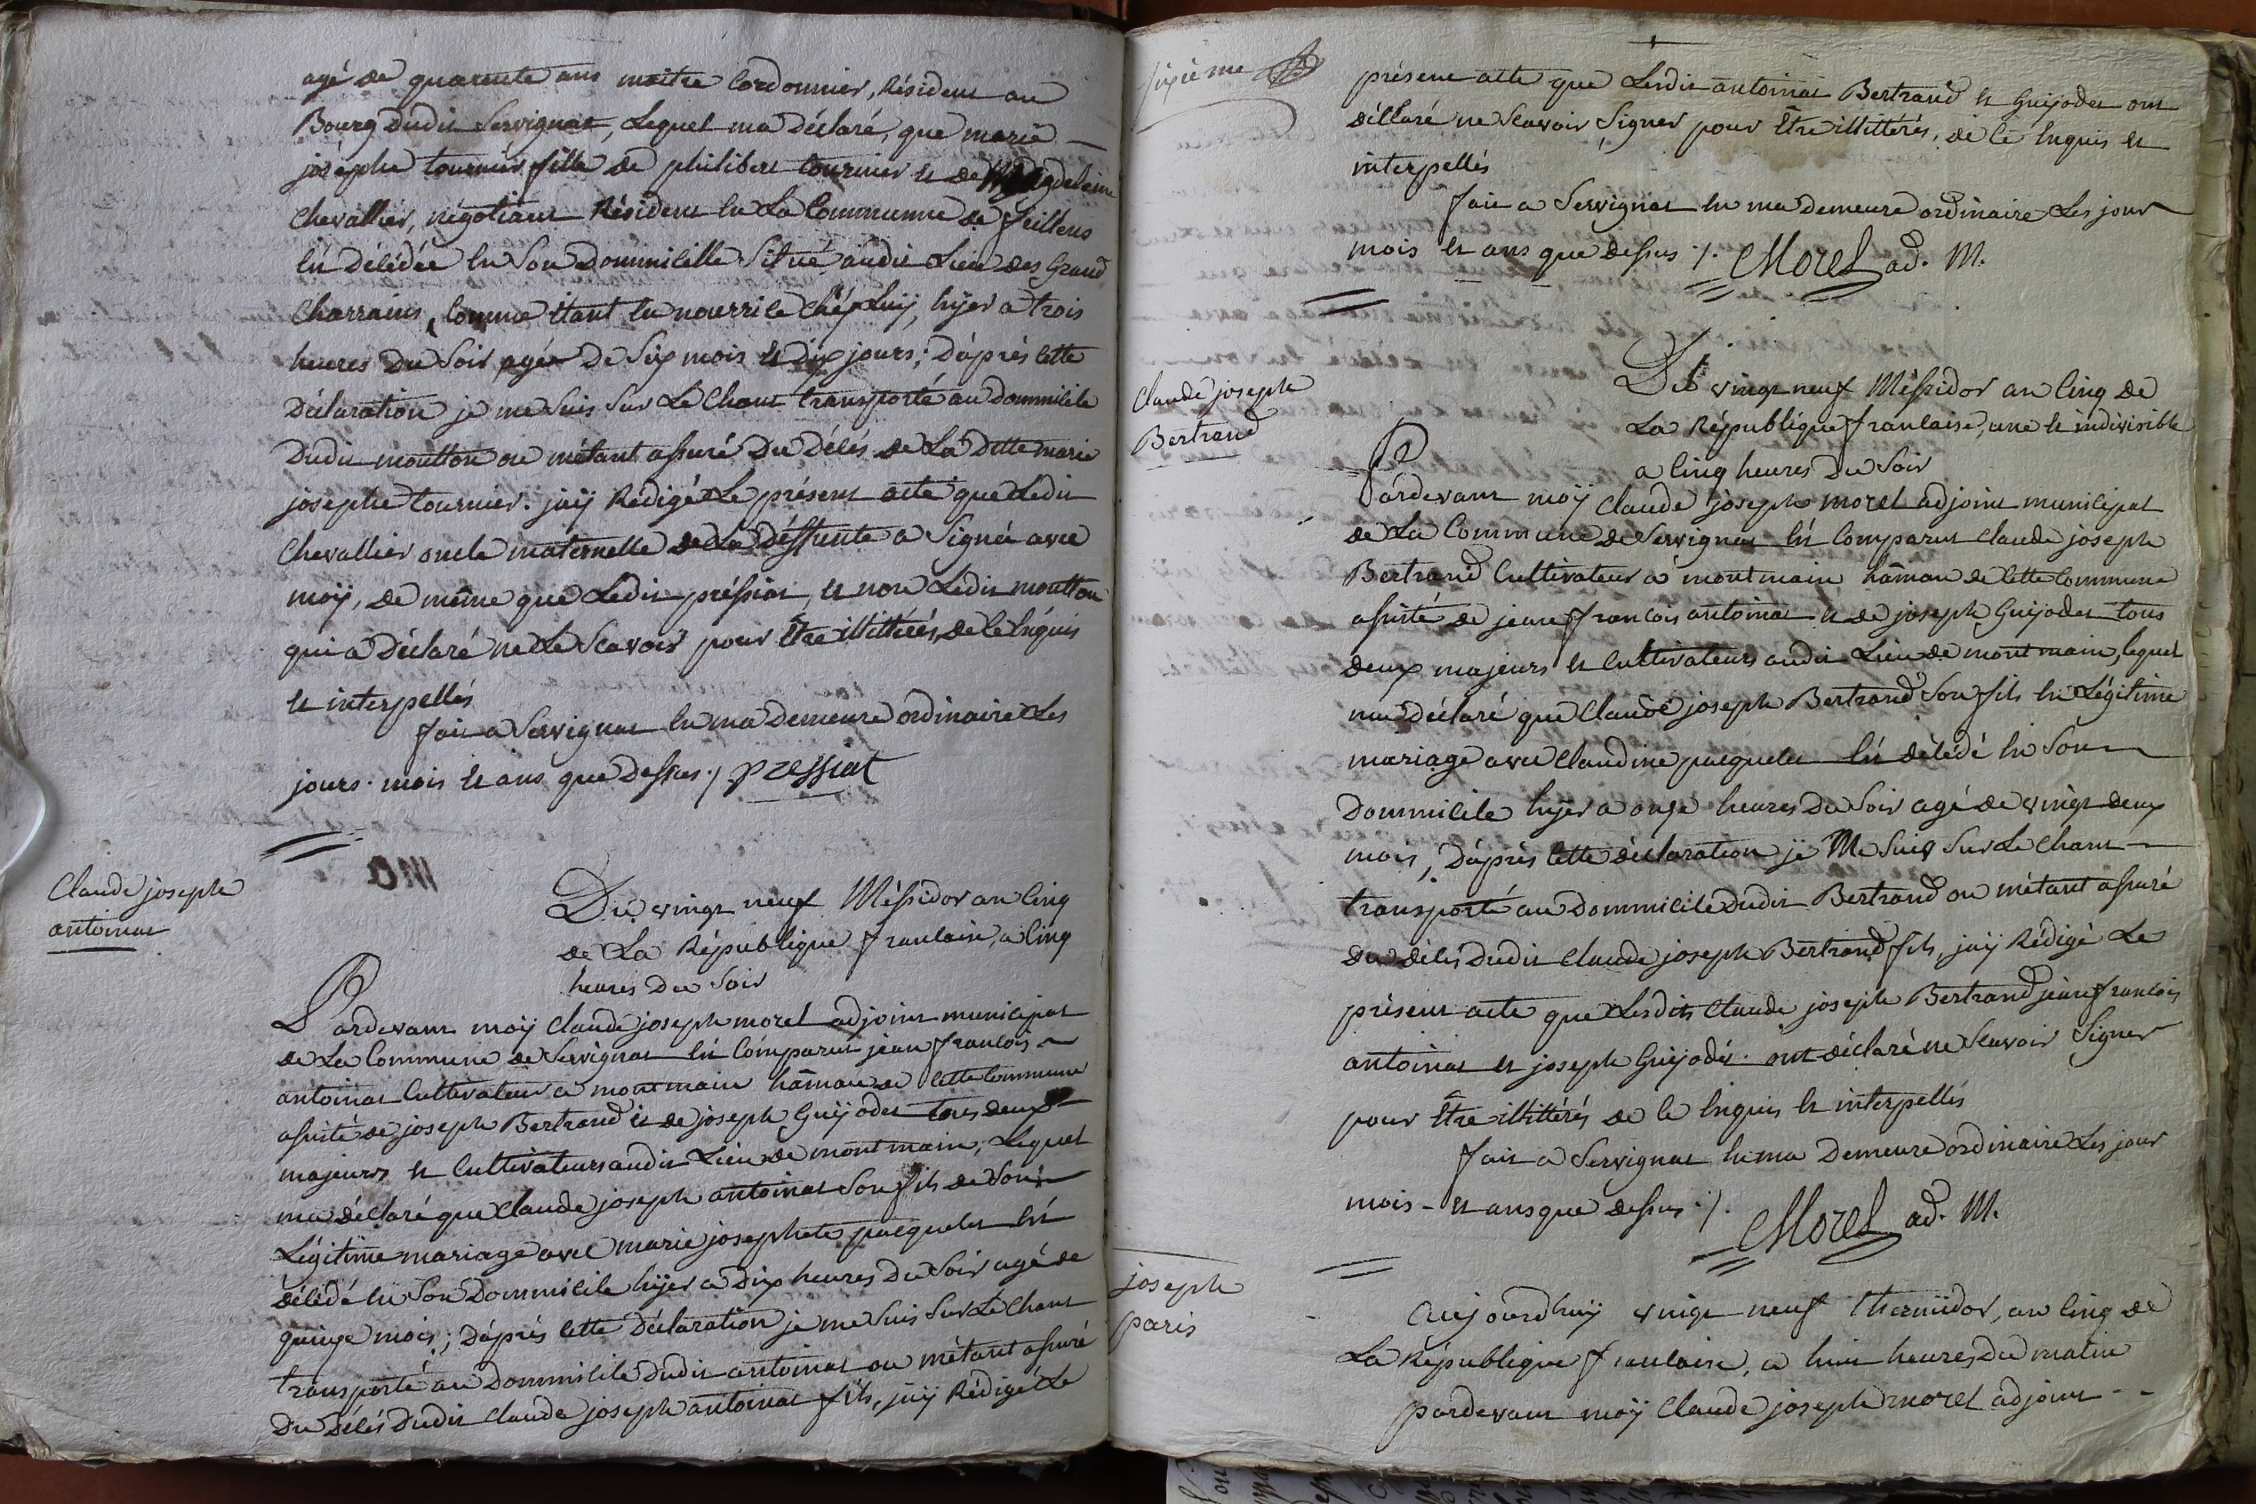 agé de quarente ans maitre Cordonnier, Résident au
Bourg dudit Servignat, Lequel ma déclaré, que marie
josephe tournier fille de philibert tournier et de Magdelaine
Chevallier, négotiant Résident en La Commune de feillens
Est décédée en Son Dommicille Situé audit Lieu des Grand
Charrains, Comme étant en nourrice chéz Luÿ, hÿer a trois
heures du Soir agée de Six mois et dix jours; D'après cette
déclaration je me suis Sur Le Chant transporté au dommicile
Dudit moutton ou m'étant assuré du décés de La ditte marie
josephe tournier. jaÿ Rédigé Le présent acte que Ledit
Chevallier oncle maternelle de La deffunte a Signé avec
moÿ, de même que Ledit préssiat, et non Ledit moutton
qui a déclaré ne Le Scavoir pour Être illittérés, de ce Enquis
et interpellés
fait a Servignat En ma demeure ordinaire Les
jours. mois et ans que dessus ./. pressiat
Claude joseph
antoinat
Du vingt neuf Méssidor an Cinq
de La République francaise, a Cinq
heures du Soir
Pardevant moÿ Claude joseph morel adjoint municipal
de La Commune de Servignat Est Comparut jean francois
antoinat Cultivateur a montmain hâmau de cette Commune
assisté de joseph Bertrand et de joseph Guÿodet tous deux
majeurs et Cultivateurs audit Lieu de montmain, Lequel
ma déclaré que Claude joseph antoinat Son fils de Son
Légitime mariage avec marie josephete pacquelet Est
décédé En Son Dommicile hÿer a dix heures du Soir agé de
quinze mois; D'après cette Déclaration je me suis Sur Le Chant
transporté au dommicile dudit antoinat ou m'étant assuré
du décés dudit Claude joseph antoinat fils, jaÿ Rédigé Le
sixième
présent acte que Lesdit antoinat Bertrand et Guÿodet ont
déclaré ne Scavoir Signer pour Être illittérés, de ce Enquis et
interpellés
fait a Servignat En ma demeure ordinaire Les jour
mois et ans que dessus ./. CMorel ad. M.
Claude joseph
Bertrand
Du vingt neuf Méssidor an Cinq de
La République francaise, une et indivisible
a Cinq heures du Soir
Pardevant moÿ Claude joseph morel adjoint municipal
de La Commune de Servignat Est Comparut Claude joseph
Bertrand Cultivateur a montmain hâmau de Cette Commune
assisté de jean francois antoinat et de joseph Guÿodet tous
deux majeurs et Cultivateurs audit Lieu de montmain, lequel
ma déclaré que Claude joseph Bertrand Son fils En Légitime
mariage avec Claudine pacquelet Est décédé En Son
dommicile hÿer a onze heures du Soir agé de vingt deux
mois, D'après Cette déclaration je Me suis Sur Le Chant
transporté au dommicile dudit Bertrand ou m'étant assuré
du décés dudit Claude joseph Bertrand fils, jaÿ Rédigé Le
présent acte que Lesdits Claude joseph Bertrand jean francois
antoinat et joseph Guÿodet ont déclaré ne Scavoir Signer
pour Être illittérés de ce Enquis et interpellés
fait a Servignat En ma Demeure ordinaire Les jour
mois et ans que dessus ./. CMorel ad. M.
joseph
paris
Aujourd'huÿ vingt neuf thermidor, an Cinq de
La République francaise, a huit heures du matin
pardevant moÿ Claude joseph morel adjoint